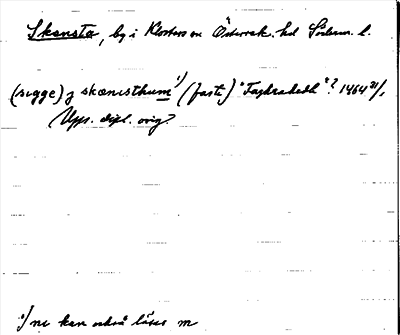 Skensta, by i Klosters sn Österrek. hd Söderm. l.
(sigge) j skænisthum ¹) (fasti) "Faghrahedh"? 1464 31/1
Upps. dipl. orig?
¹) ni kan också läses m